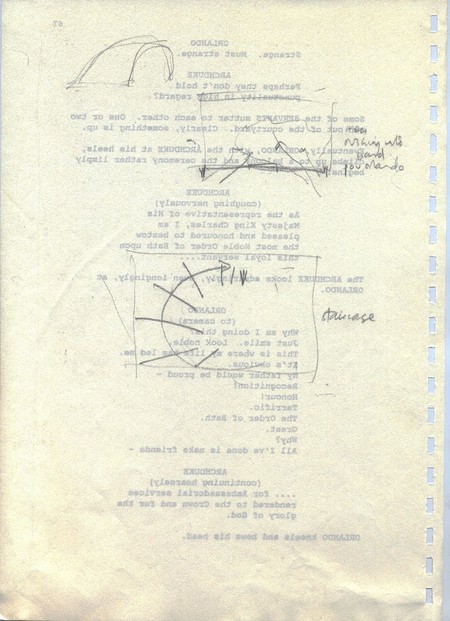 67
ORLANDO
Strange. Most strange.
ARCHDUKE
Perhaps they don't hold
punctuality in high regard.
Some of the SERVANTS mutter to each other. One or two
run out of the courtyard. Clearly, something is up.
Eventually, ORLANDO, with the ARCHDUKE at his heels,
climbs up to a balcony and the ceremony rather limply
begins.
men
running into
pov orlando
ARCHDUKE
(coughing nervously)
As the representative of His
Majesty King Charles, I am
pleased and honoured to bestow
the most Noble Order of Bath upon
this loyal servant....
The ARCHDUKE looks admiringly, even longingly, at
ORLANDO.
staircase
ORLANDO
(to camera)
Why am I doing this?
Just smile. Look noble.
This is where my life has led me.
It's obvious.
My father would be proud -
Recognition!
Honour!
Terrific.
The Order of Bath.
Great.
Why?
All I've done is make friends -
ARCHDUKE
(continuing hoarsely)
.... for Ambassadorial services
rendered to the Crown and for the
glory of God.
ORLANDO kneels and bows his head.